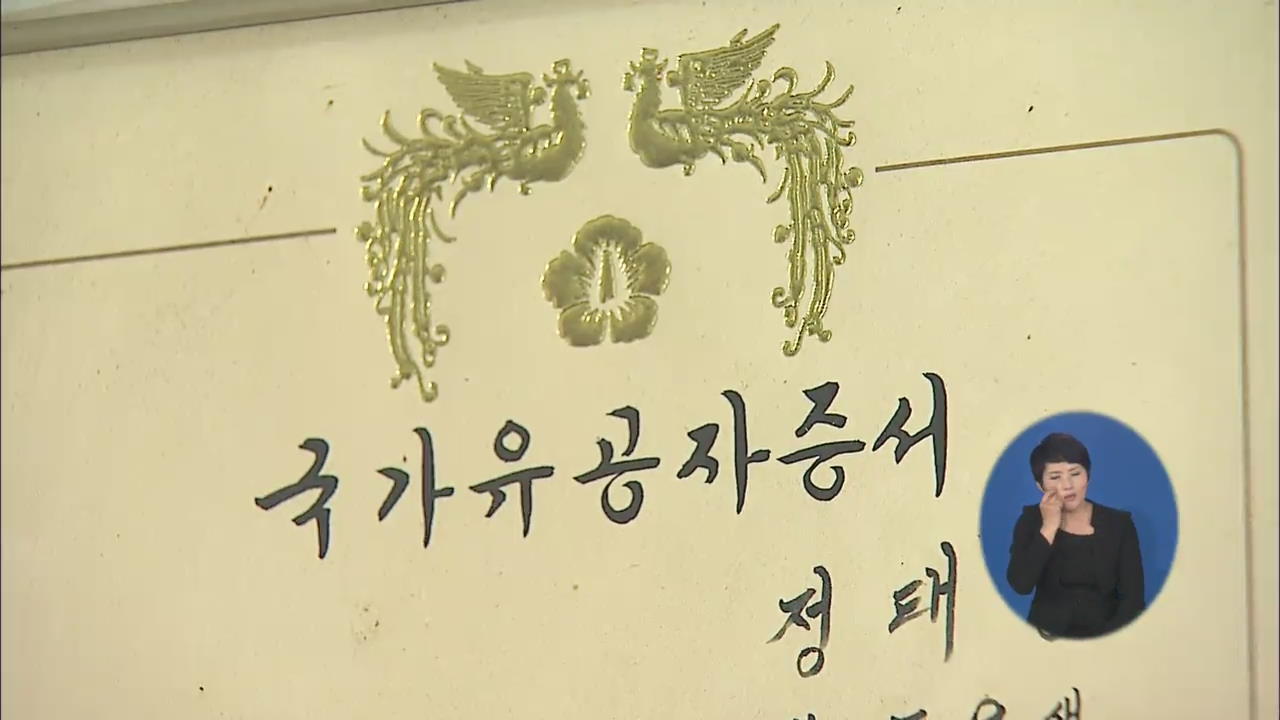 국가유공자증서
정 태